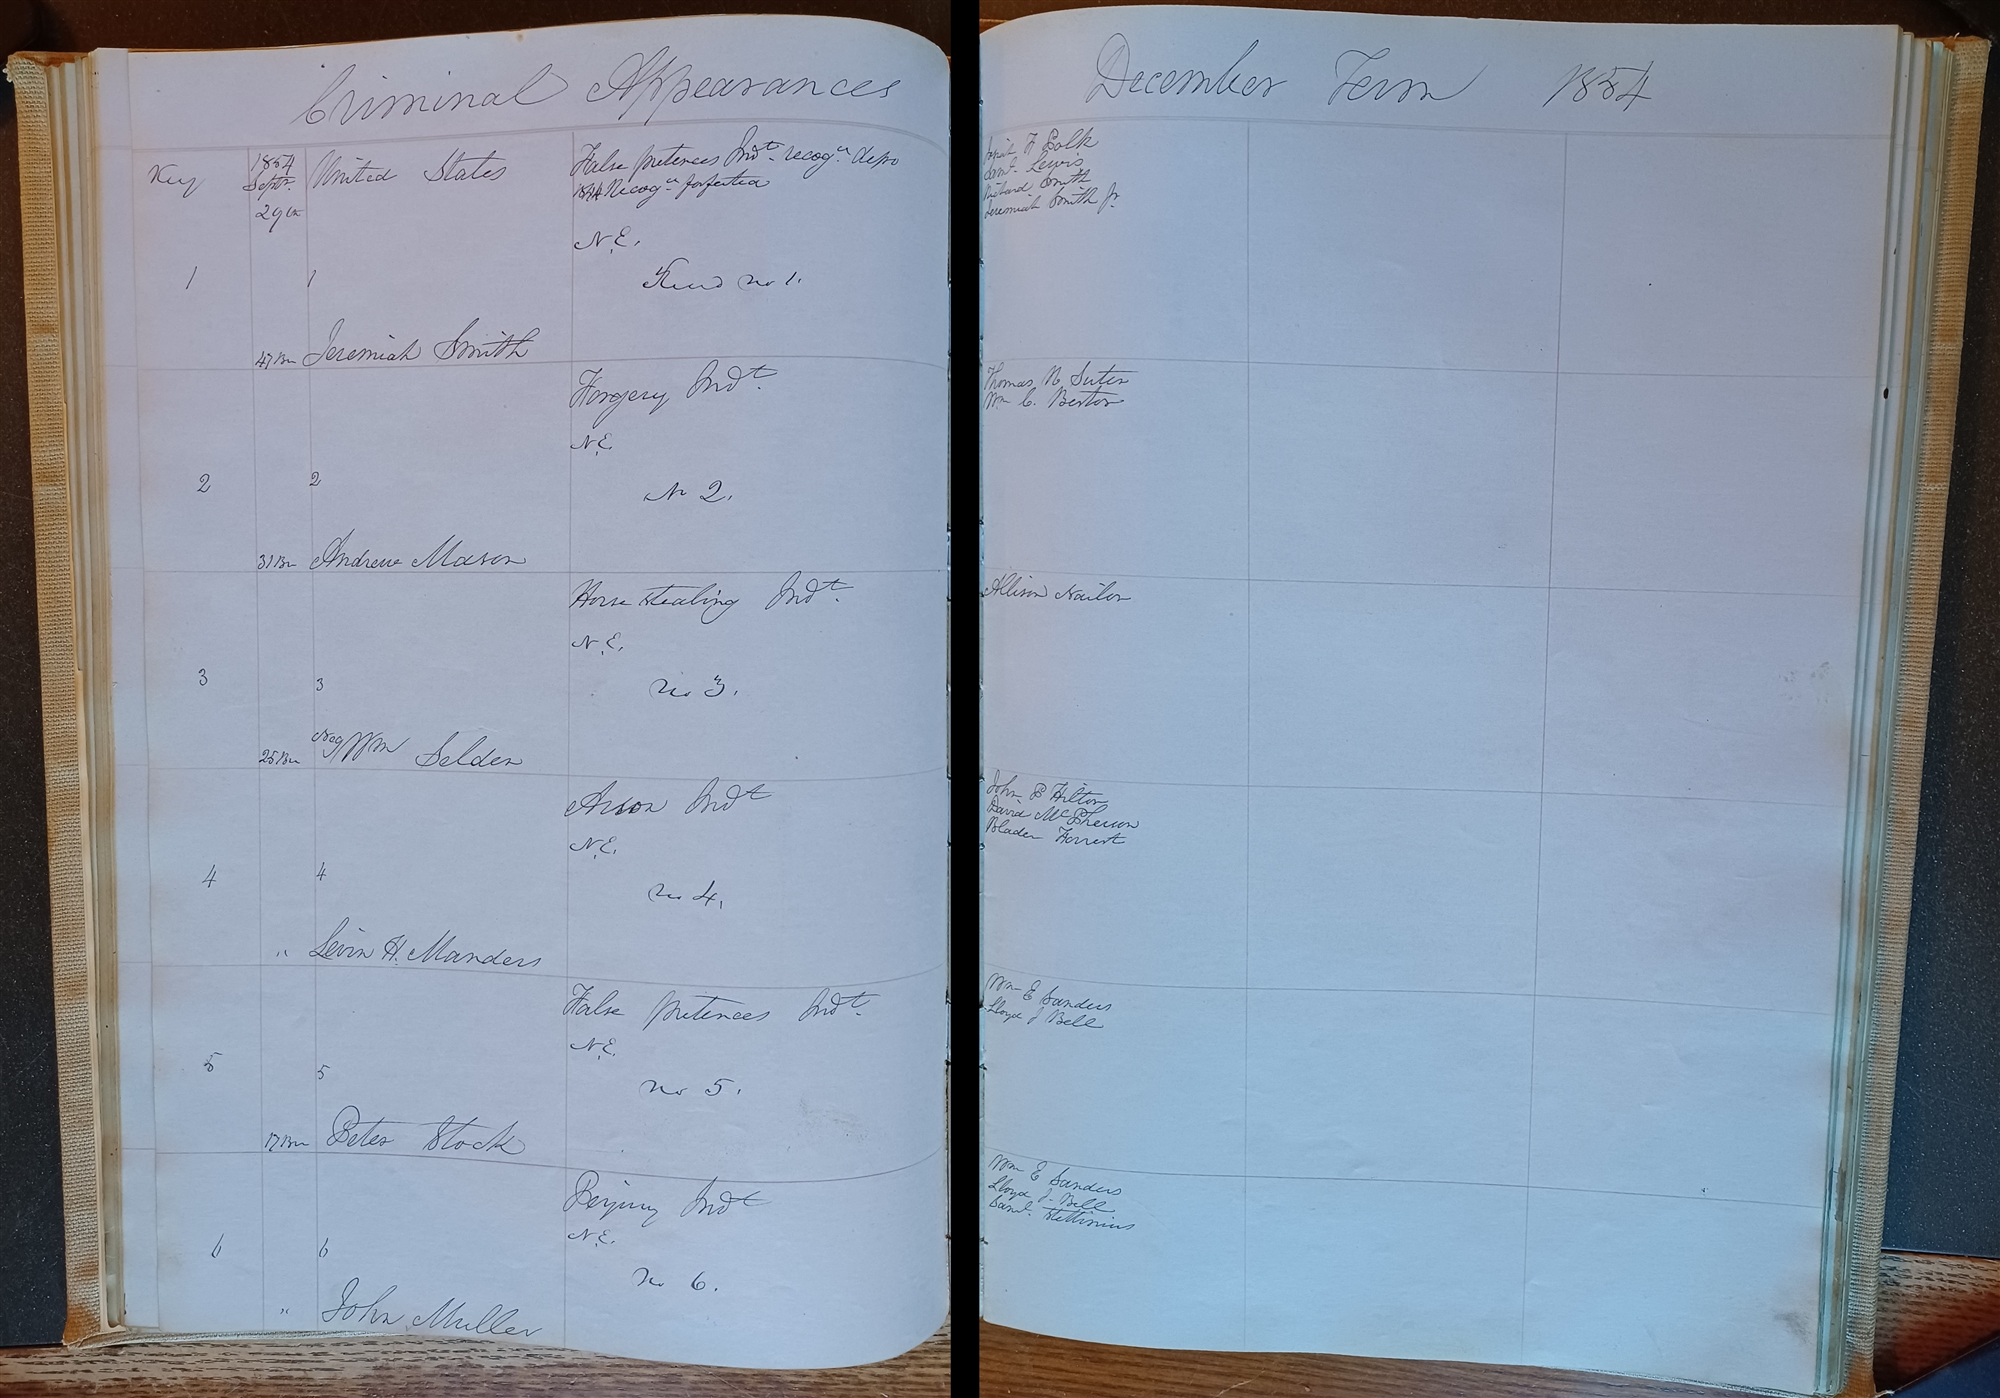 Criminal Appearances
Key
1854
Septr.
29
United States
False pretences Indt. recog. depo
Recog. forfeited
N.E.
no 1.
1
1
47 Bn
Jeremiah Smith
Forgery Indt.
N.E.
2
2
No 2.
31 Bn
Andrew Mason
Horse stealing Indt.
N.E.
3
3
no 3.
25 Bn
Neg Wm Selden
Arson Indt
N.E.
4
4
no 4.
"
Levin H. Manders
False pretences Indt.
N.E.
5
5
no 5.
17 Bn
Peter Stock
Perjury Indt
N.E.
6
6
no 6.
"
John Muller
December Term 1854
F Polk
Saml. Lewis
Richard Smith
Jeremiah Smith Jr.
Thomas N. Suter
Wm C. Berton
Allison Nailor
John P Hilton
David McPherson
Bladen Forrest
Wm E Sanders
Lloyd J Bell
Wm E Sanders
Lloyd J. Bell
Saml. Stettinius